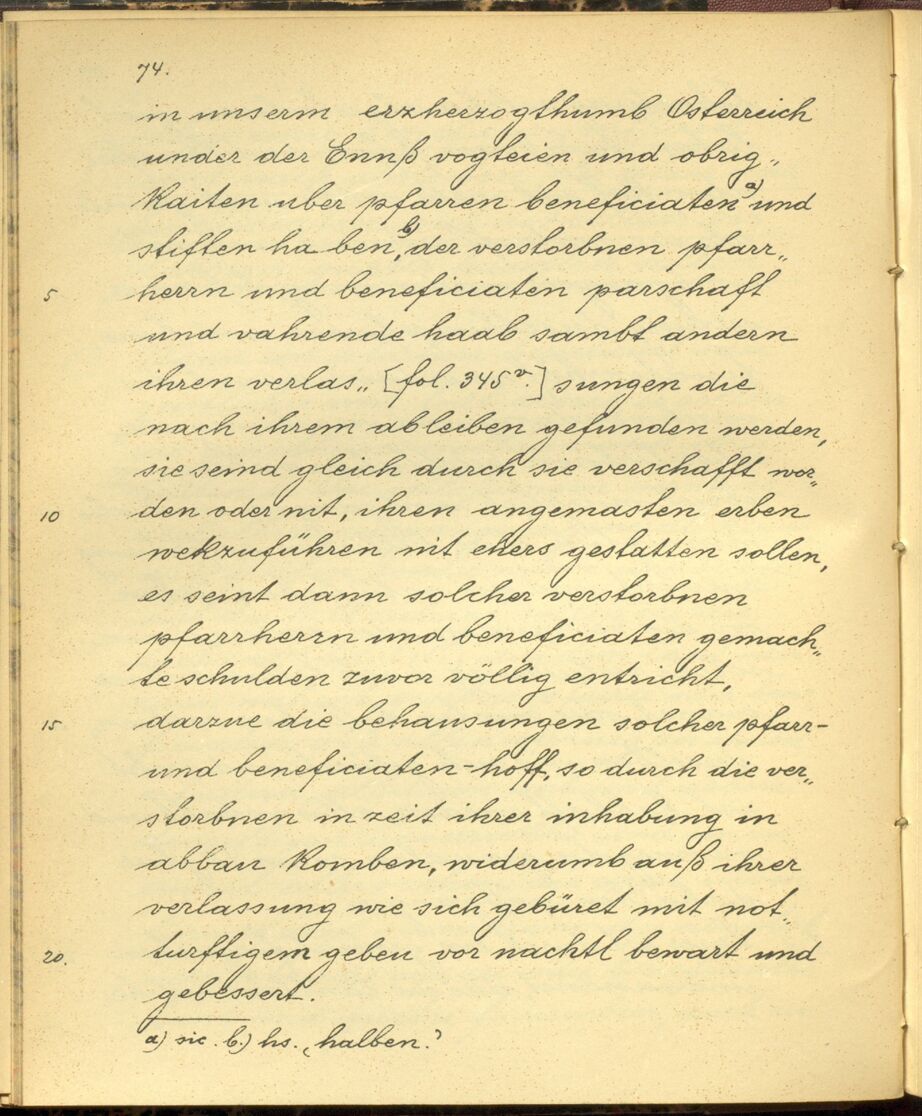 74.
in unserm erzherzogthumb Osterreich
under der Ennß vogteien und obrig„
kaiten uber pfarren beneficiaten a) und
stifften ha ben, b) der verstorbnen pfarr„
5 herrn und beneficiaten parschaft
und vahrende haab sambt andern
ihren verlas„ [fol. 345 v.] sungen die
nach ihrem ableiben gefunden werden,
sie seind gleich durch sie verschafft wor„
10 den oder nit, ihren angemasten erben
wekzuführen nit ehers gestatten sollen,
es seint dann solcher verstorbnen
pfarrherrn und beneficiaten gemach„
te schulden zuvor völlig entricht,
15 darzue die behausungen solcher pfarr-
und beneficiaten-hoff, so durch die ver„
storbnen in zeit ihrer inhabung in
abbau komben, widerumb auß ihrer
verlassung wie sich gebüret mit not„
20. turfftigem gebeu vor nachtl bewart und
gebessert.
a) sic. b.) hs. ‚halben.’